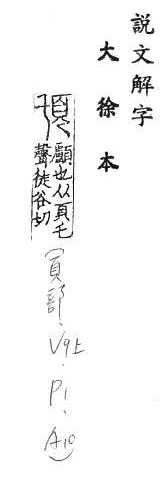 說文解字
大徐本
顱也从頁乇
聲徒谷切
(頁部、V9上、P1、A10)